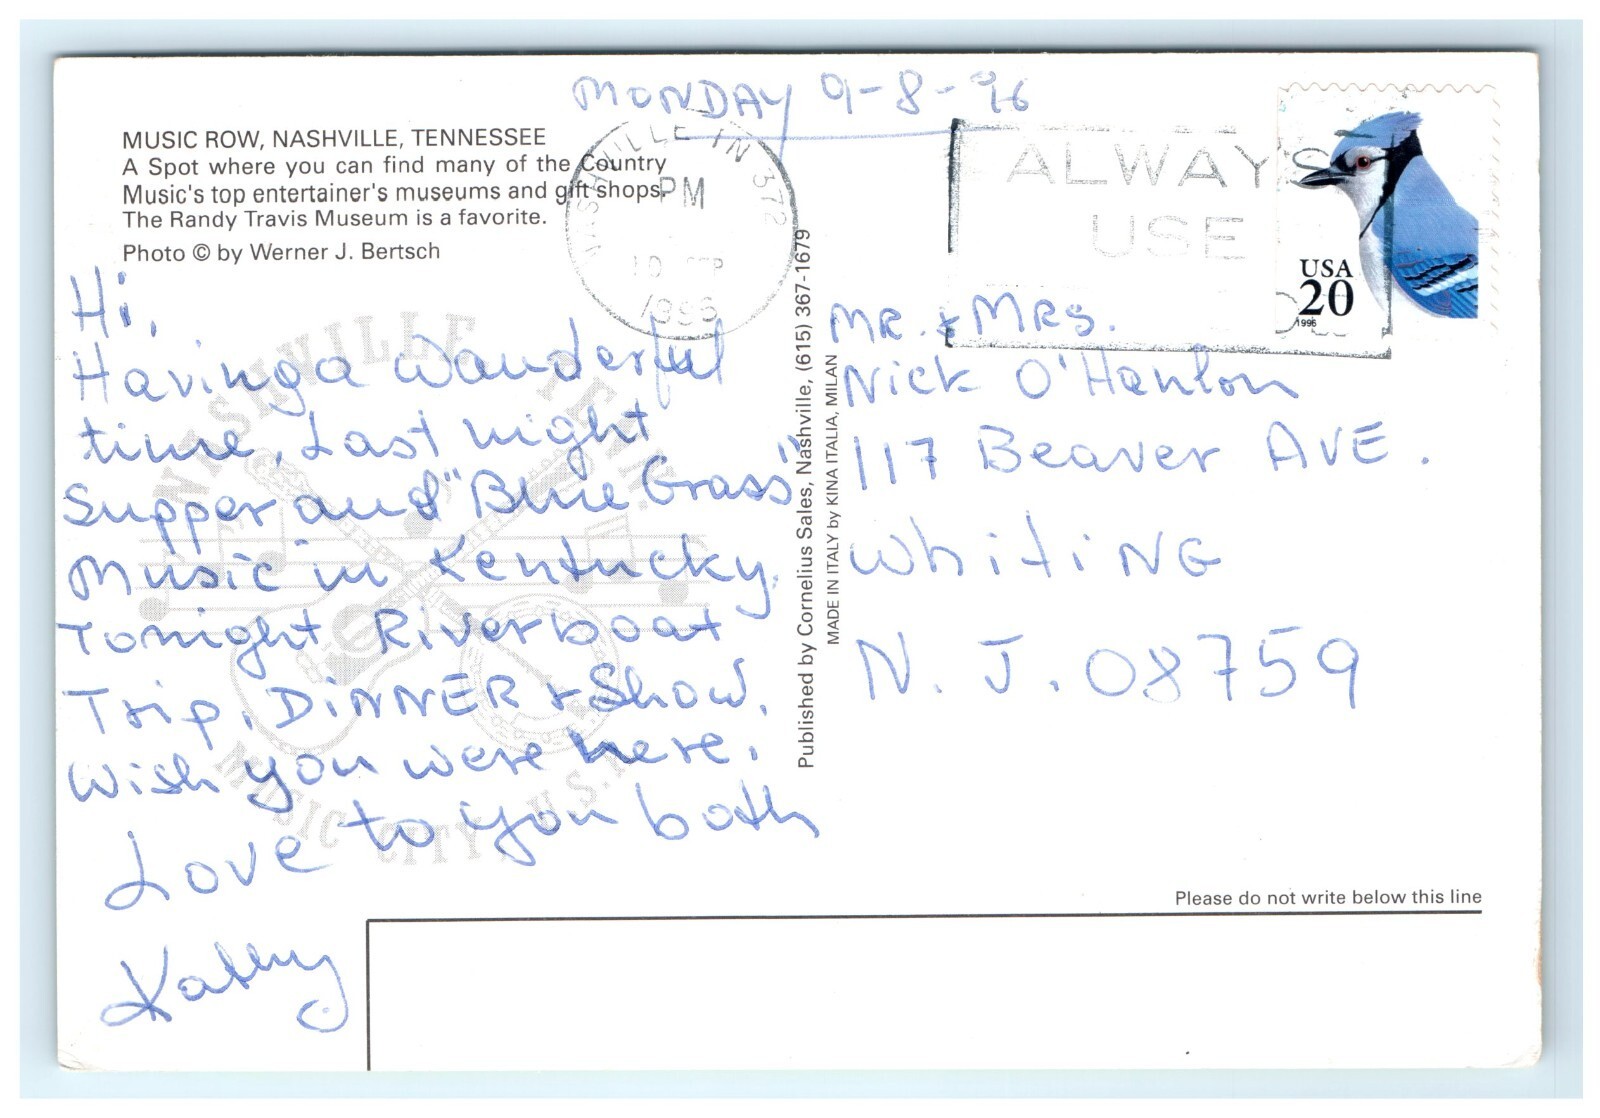 MONDAY 9-8-96
MUSIC ROW, NASHVILLE, TENNESSEE
A Spot where you can find many of the Country
Music's top entertainer's museums and gift shops.
The Randy Travis Museum is a favorite.
Photo © by Werner J. Bertsch
NASHVILLE TN 372
PM
10 SEP
1996
ALWAYS
USE
USA
20
1996
Hi,
Having a Wanderful
time, Last night
Supper and "Blue Grass"
Music in Kentucky.
Tonight Riverboat
Trip, DiNNER & Show.
Wish you were here.
Love to you both
Kathy
NASHVILLE
MUSIC CITY U.S.A.
Published by Cornelius Sales, Nashville, (615) 367-1679
MADE IN ITALY by KINA ITALIA, MILAN
MR. & MRS.
Nick O'Hanlon
117 Beaver AVE.
WhiTiNG
N. J. 08759
Please do not write below this line